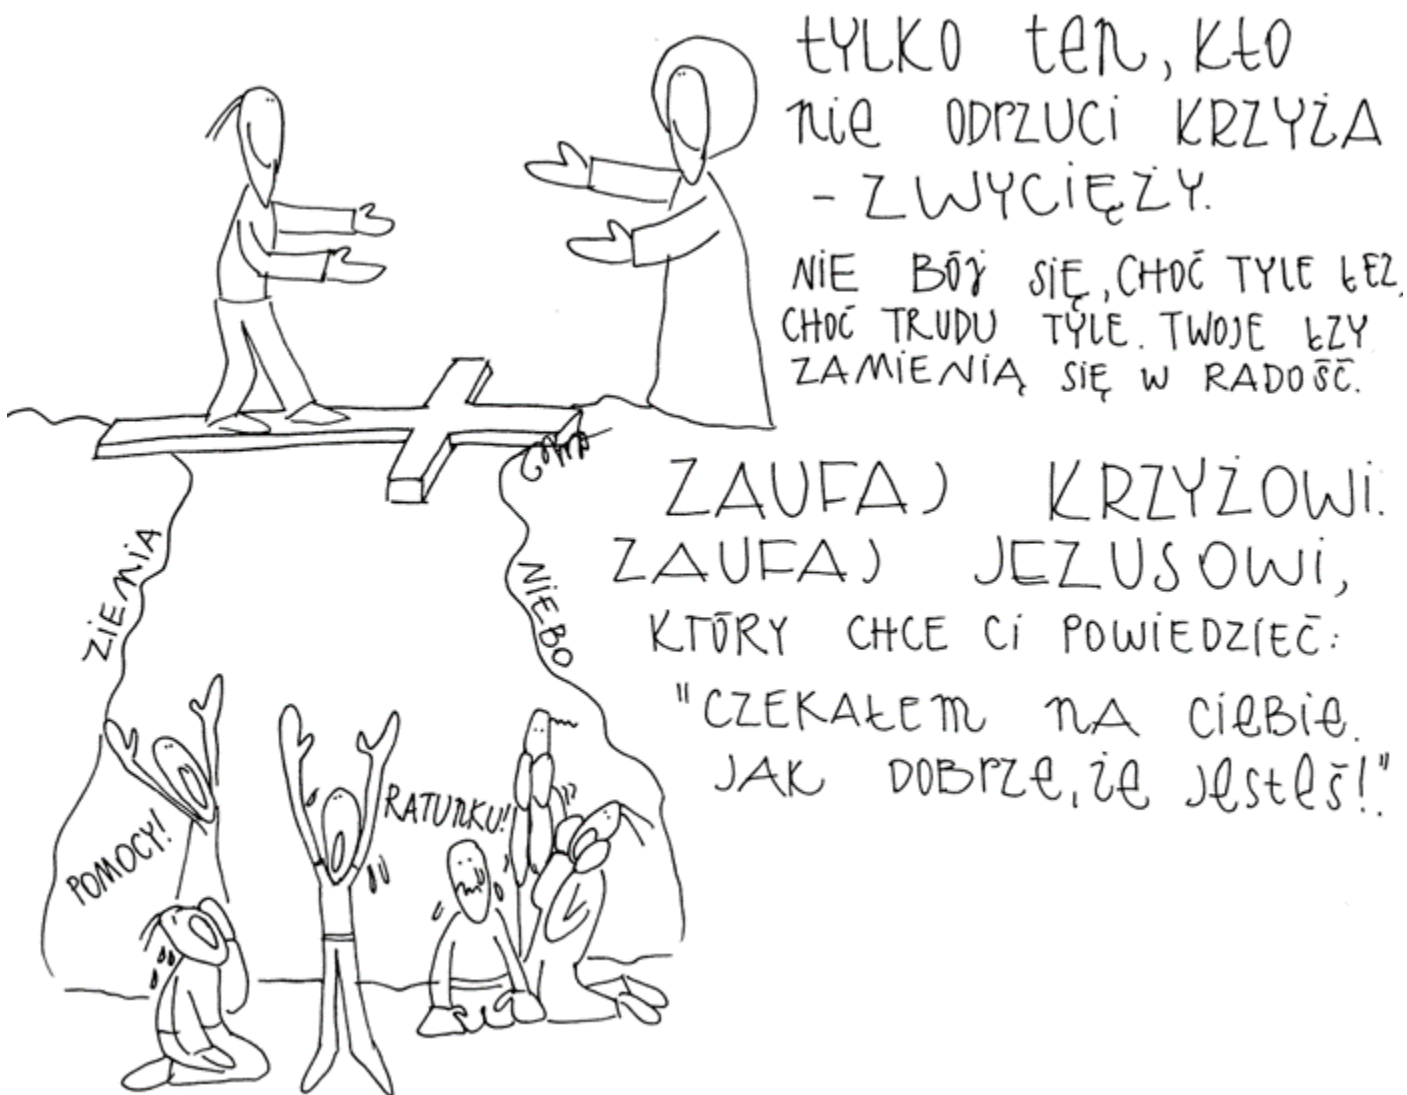 tYLKO ten, Kto
nie ODrZUCi KRZYŻA
- ZWYCiĘŻY.
NiE BÓJ SiĘ, CHOĆ TYLE ŁEZ,
CHOĆ TRUDU TYLE. TWOJE ŁZY
ZAMiENiĄ SiĘ W RADOŚĆ.
ZAUFAJ KRZYŻOWi.
ZAUFAJ JEZUSOWi,
KTÓRY CHCE Ci POWiEDZiEĆ:
"CZEKAŁem nA CieBie.
JAK DOBrZe, że Jesteś!"
ZiEMiA
NiEBO
POMOCY!
RATUnKU!